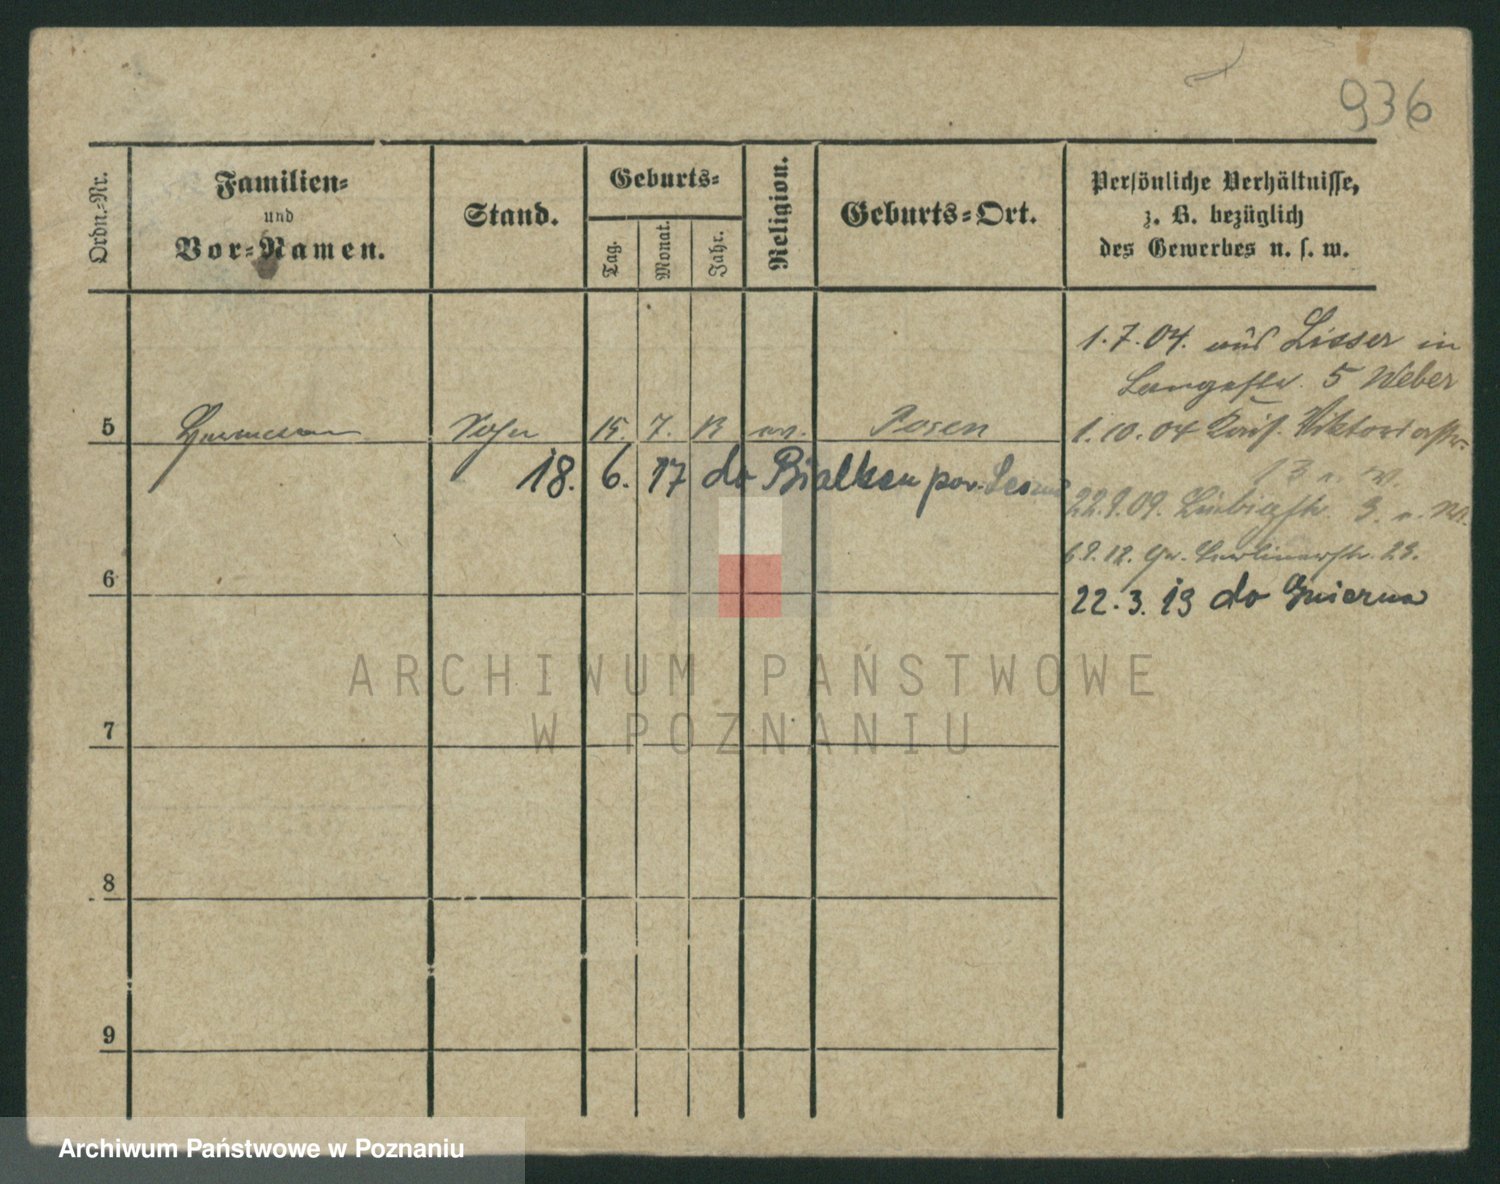 936
Ordn.-Nr.
Familien-
und
Vor-Namen.
Stand.
Geburts-
Tag.
Monat.
Jahr.
Religion.
Geburts-Ort.
Persönliche Verhältnisse,
z. B. bezüglich
des Gewerbes u. s. w.
1.7.04. aus Lisser in
Langestr. 5 Weber
5 Hermann Sohn 15. 7. ev. Posen
1.10.04 Viktoriastr.
18. 6. 17 do Bialken pow.
3.
6
22.3.19 do Gnierna
7
8
9
ARCHIWUM PAŃSTWOWE
W POZNANIU
Archiwum Państwowe w Poznaniu